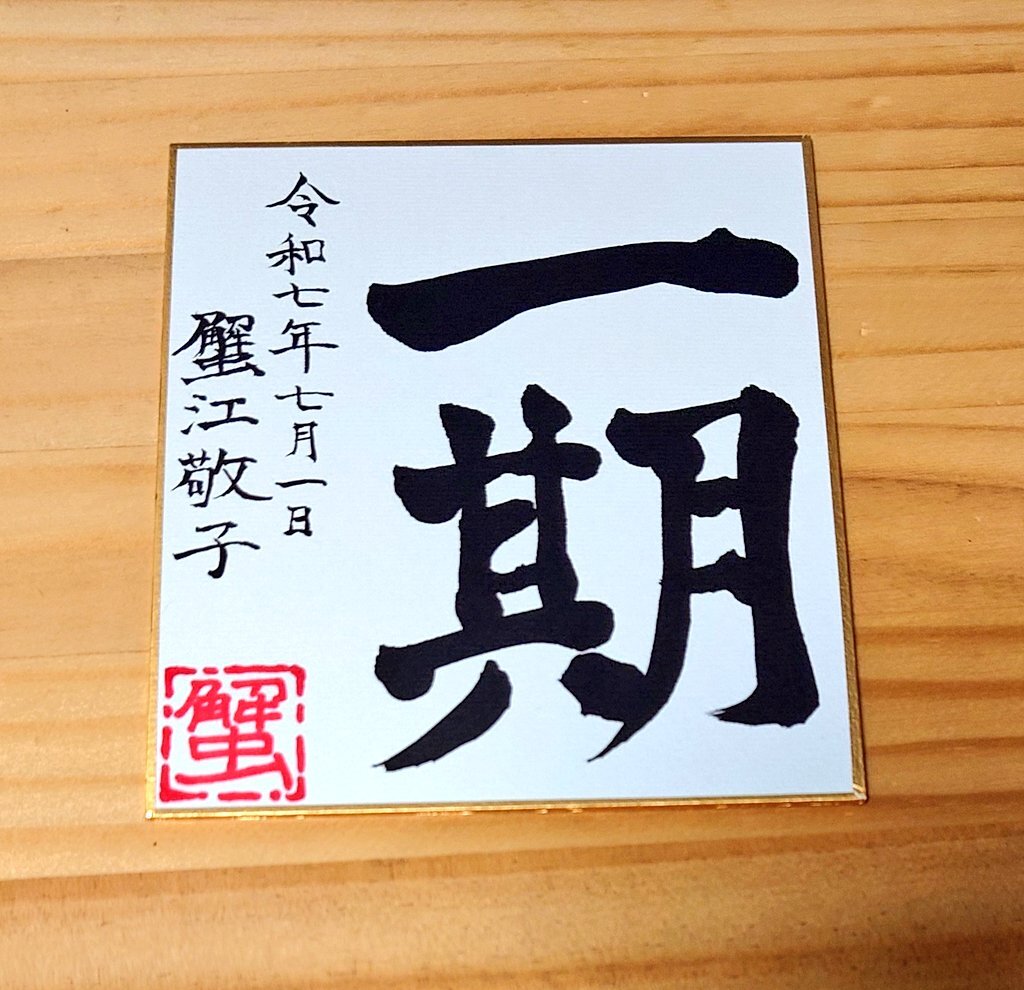 一期
令和七年七月一日
蟹江敬子
蟹